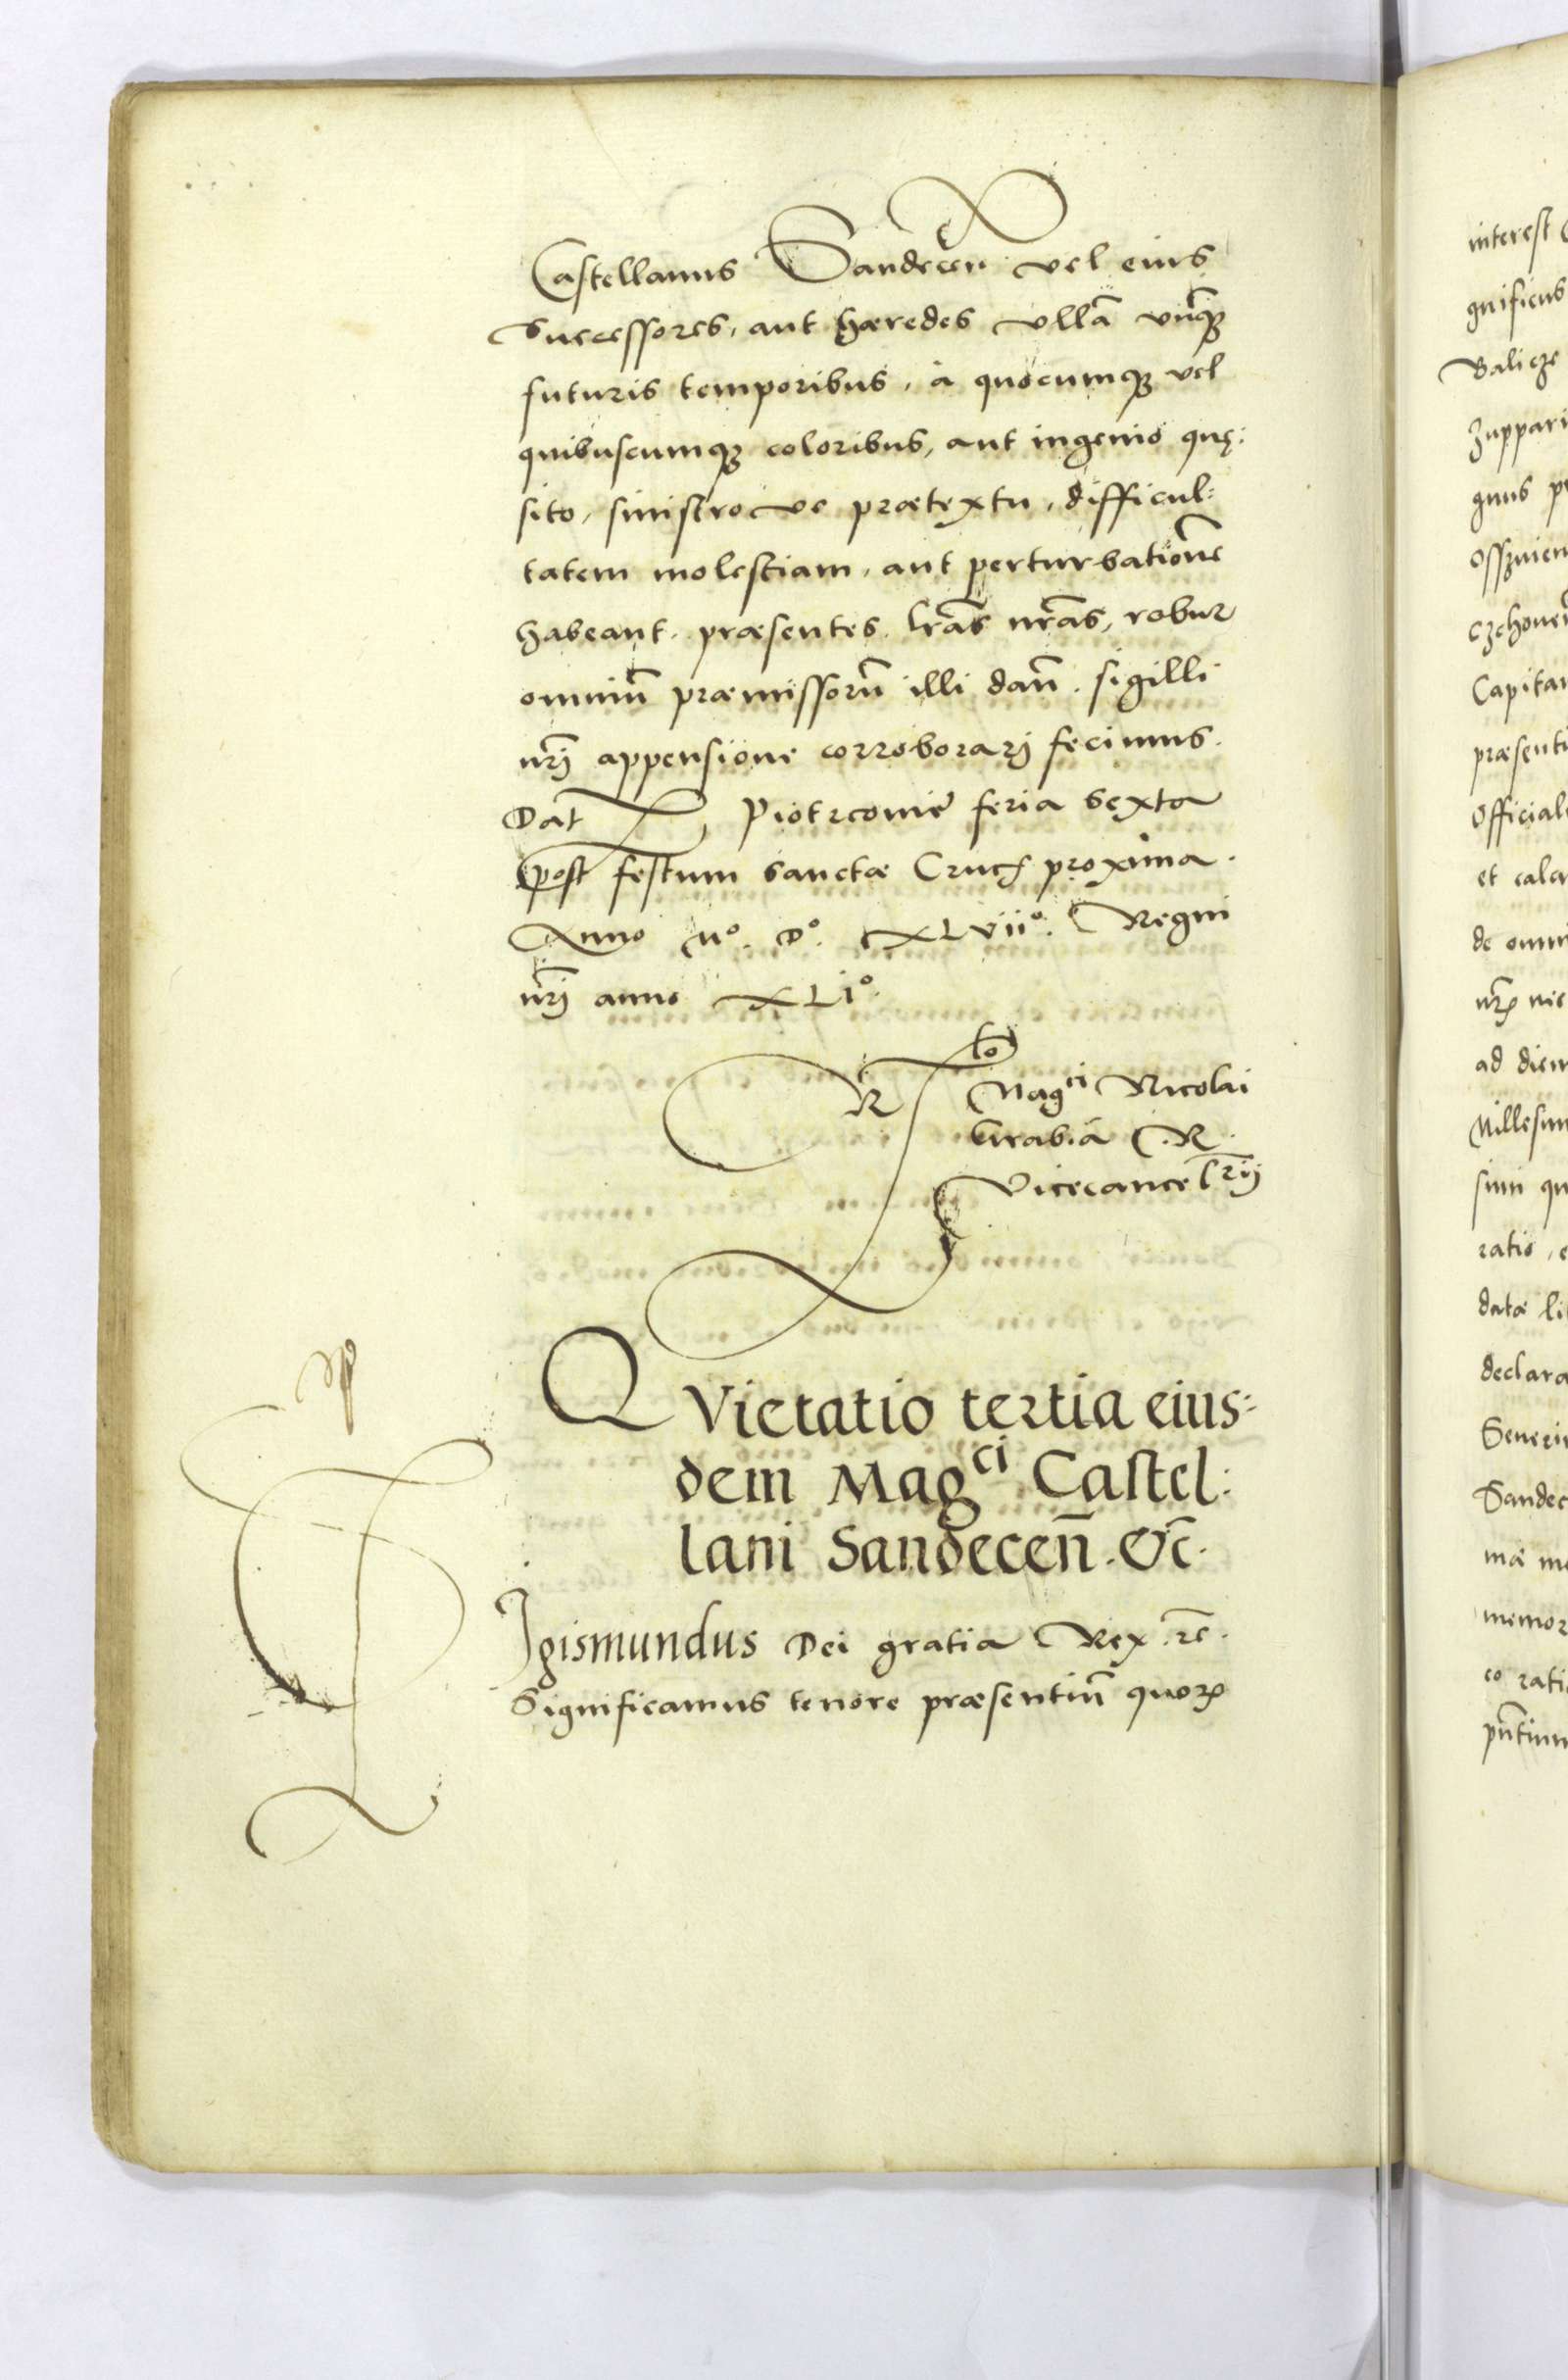 Castellanus Sandecen̄ vel eius
Successores, aut hæredes vllā vnq̄ꝫ
futuris temporibus, à quocumqꝫ vel
quibuscumqꝫ coloribus, aut ingenio quę:
sito, sinistro ve prætextu, difficul:
tatem molestiam, aut perturbationē
habeant. præsentes lr̄as nr̄as, robur
omniū præmissorū illi dan̄. sigilli
nr̄j appensione corroborarj fecimus.
Dat̄ Piotrcowie feria sexta
post festum sanctæ Crucꝭ proxima.
Anno Mº. Dº. XLviiº. Regni
nr̄j anno XLIº.
Rᵗᵒ
Magᶜⁱ Nicolai
Grabia R.
Vicecancelr̄ij
QVietatio tertia eius:
dem Magᶜⁱ Castel:
lani Sandecen̄. &c̄.
Igismundus Dei gratia Rex .rc̄.
Significamus tenore præsentiū quoꝝ
interest
gnificus
Balicze
Zuppari
gnus p
Osszwien
czchoven̄
Capitan
præsenti
Official
et calcu
de omni
nr̄o nic
ad diem
Millesim
simi qu
ratio, e
datæ li
declara
Severi
Sandec
mæ me
memor
co ratio
pn̄tium